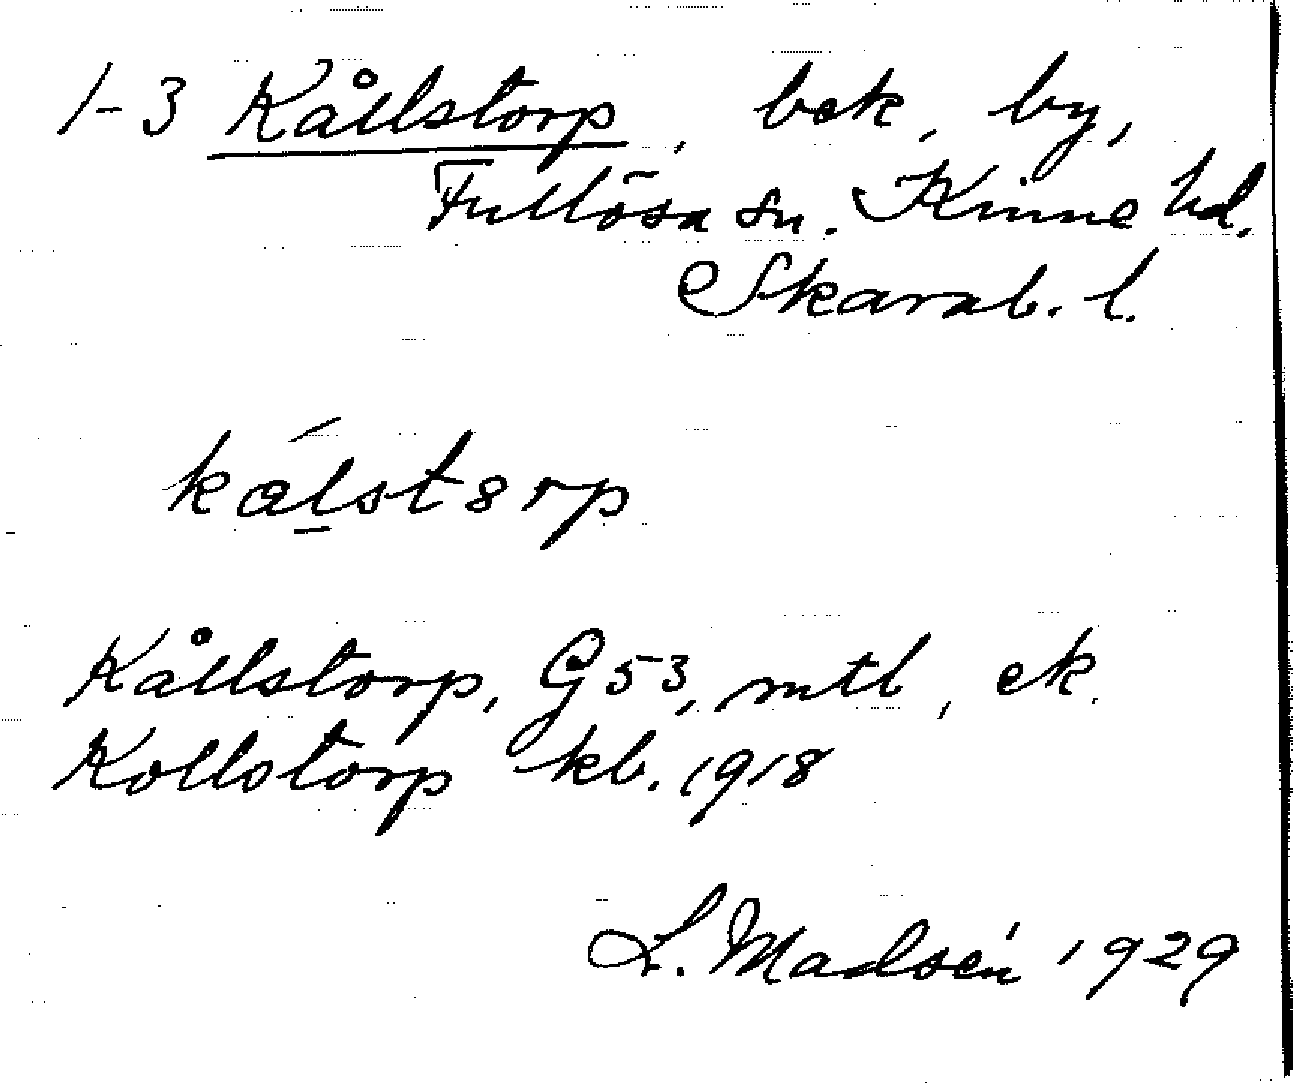 1-3 Kållstorp, bek, by,
Fullösa sn. Kinne hd.
Skarab. l.
kálstorp
Kållstorp, G53, mtl, ek.
Kollstorp kb. 1918
L. Madsén 1929